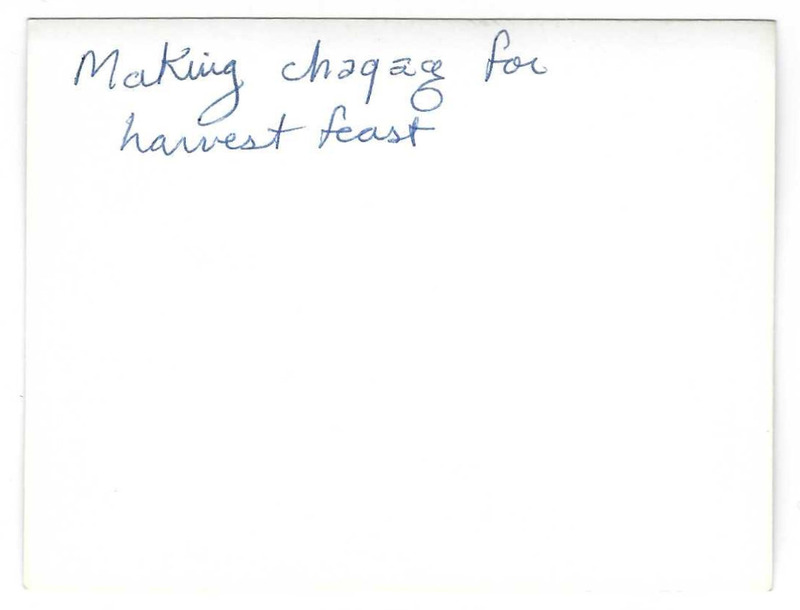 Making chəqəg for
harvest feast